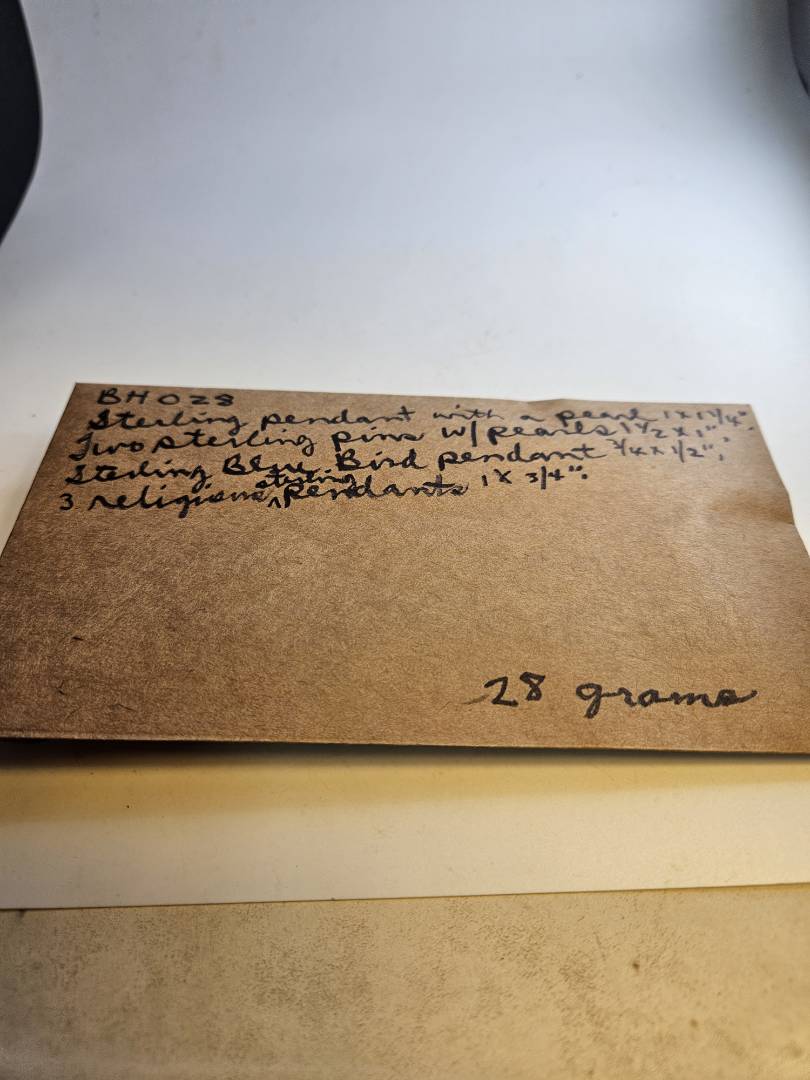 BH 028
Sterling pendant with a pearl 1 x 1 1/4".
Two sterling pins w/ pearls 1 1/2 x 1".
Sterling Blue Bird pendant 3/4 x 1/2".
3 religious sterling pendants 1 x 3/4".
28 grams